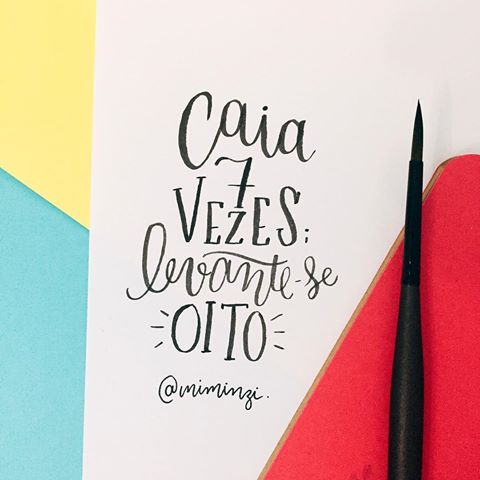 Caia
7
VEZES;
levante-se
OITO
@miminzi.